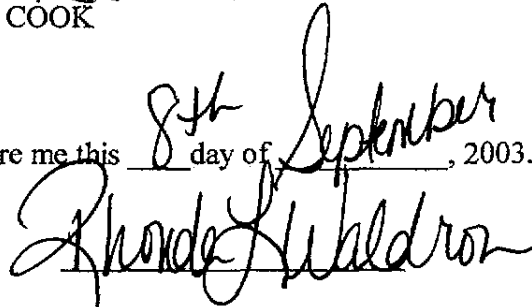 COOK
re me this 8th day of September, 2003.
Rhonda L Waldron